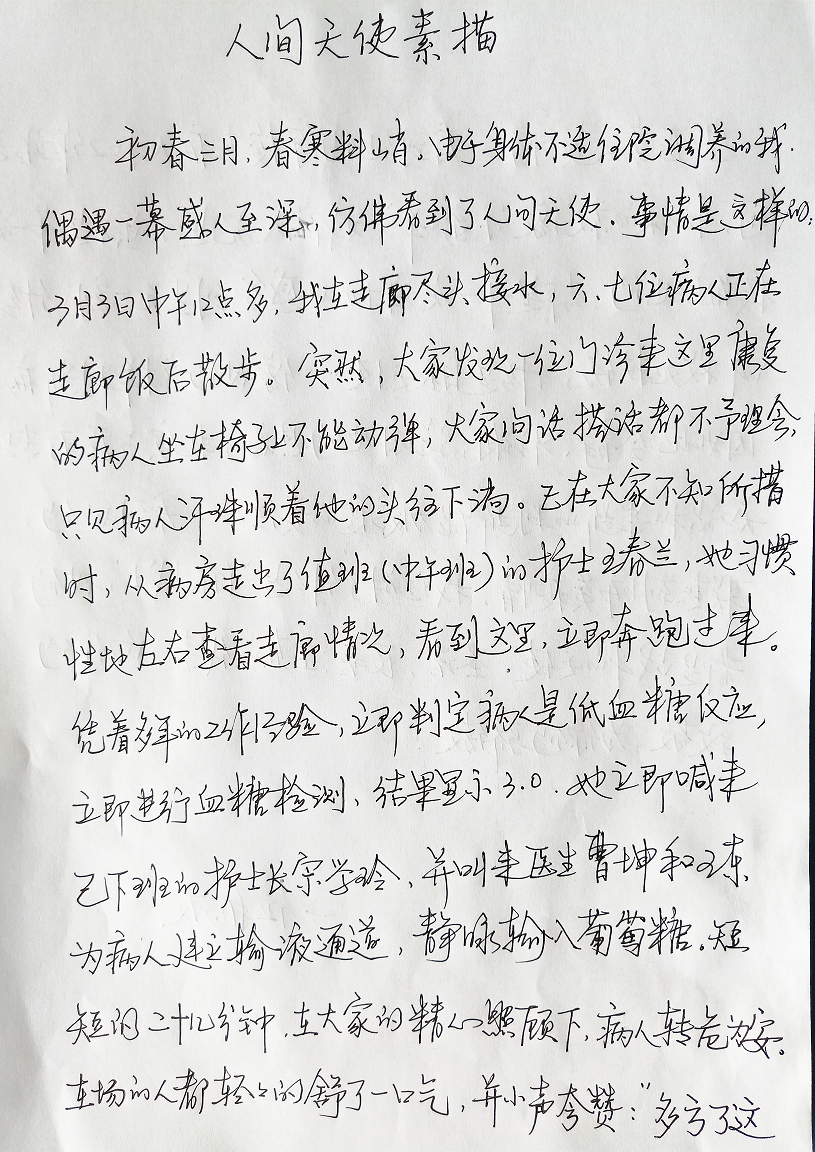 人间天使素描
初春三月,春寒料峭。由于身体不适住院调养的我,
偶遇一幕感人至深,仿佛看到了人间天使。事情是这样的:
3月3日中午12点多,我在走廊尽头接水,六、七位病人正在
走廊饭后散步。突然,大家发现一位门诊来这里康复
的病人坐在椅子上不能动弹,大家问话搭话都不予理会,
只见病人汗珠顺着他的头往下淌。正在大家不知所措
时,从病房走出了值班(中午班)的护士王春兰,她习惯
性地左右查看走廊情况,看到这里,立即奔跑过来。
凭着多年的工作经验,立即判定病人是低血糖反应,
立即进行血糖检测,结果显示3.0.她立即喊来
已下班的护士长宗学玲,并叫来医生曹坤和王东,
为病人建立输液通道,静脉输入葡萄糖。短
短的二十几分钟,在大家的精心照顾下,病人转危为安。
在场的人都轻轻的舒了一口气,并小声夸赞:"多亏了这